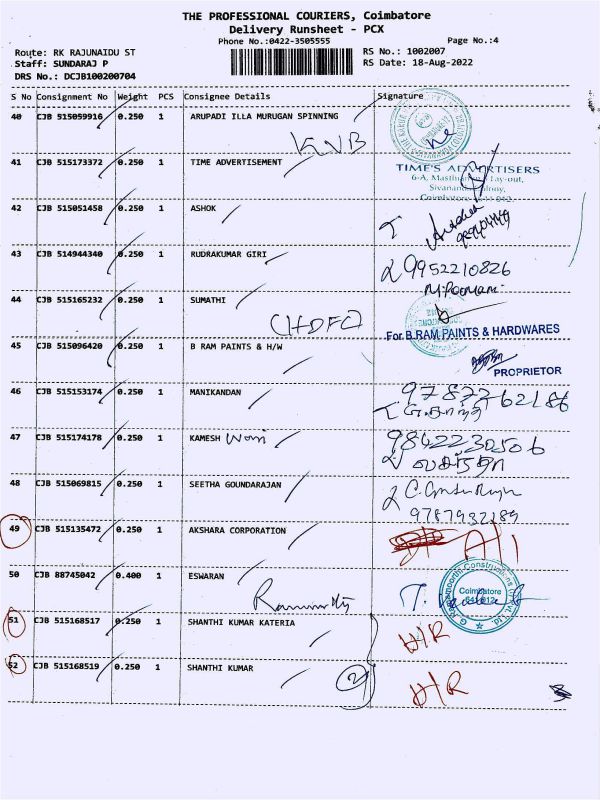 THE PROFESSIONAL COURIERS, Coimbatore
Delivery Runsheet - PCX
Phone No.:0422-3505555
Page No.:4
Route: RK RAJUNAIDU ST
RS No.: 1002007
Staff: SUNDARAJ P
RS Date: 18-Aug-2022
DRS No.: DCJB100200704
S No Consignment No Weight PCS Consignee Details Signature
40 CJB 515059916 0.250 1 ARUPADI ILLA MURUGAN SPINNING
KVB
41 CJB 515173372 0.250 1 TIME ADVERTISEMENT
TIME'S ADVERTISERS
6-A, Lay-out,
Colony,
Coimbatore
42 CJB 515051458 0.250 1 ASHOK
43 CJB 514944340 0.250 1 RUDRAKUMAR GIRI
9952210826
M.Poomani
44 CJB 515165232 0.250 1 SUMATHI
(HDFC)
For B.RAM PAINTS & HARDWARES
45 CJB 515096420 0.250 1 B RAM PAINTS & H/W
PROPRIETOR
46 CJB 515153174 0.250 1 MANIKANDAN
9787262186
47 CJB 515174178 0.250 1 KAMESH
9842230506
48 CJB 515069815 0.250 1 SEETHA GOUNDARAJAN
9787932189
49 CJB 515135472 0.250 1 AKSHARA CORPORATION
50 CJB 88745042 0.400 1 ESWARAN
Coimbatore
51 CJB 515168517 0.250 1 SHANTHI KUMAR KATERIA
H/R
52 CJB 515168519 0.250 1 SHANTHI KUMAR
2
H/R